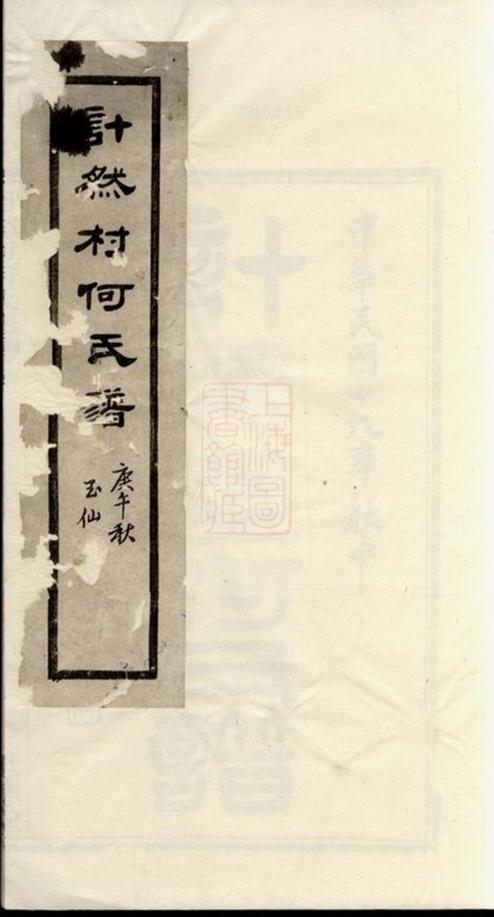 計然村何氏譜
庚午秋
玉仙
中華民國十九年秋
上海圖
書館藏